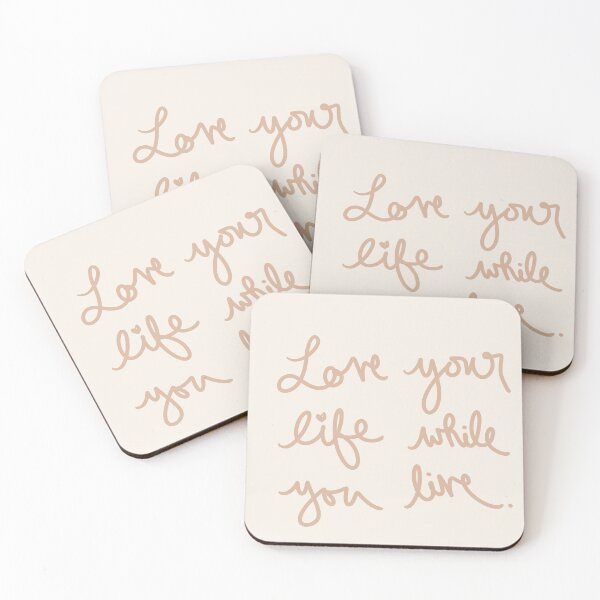 Love your
Love your
life while
Love your
life while
you
Love your
life while
you live.